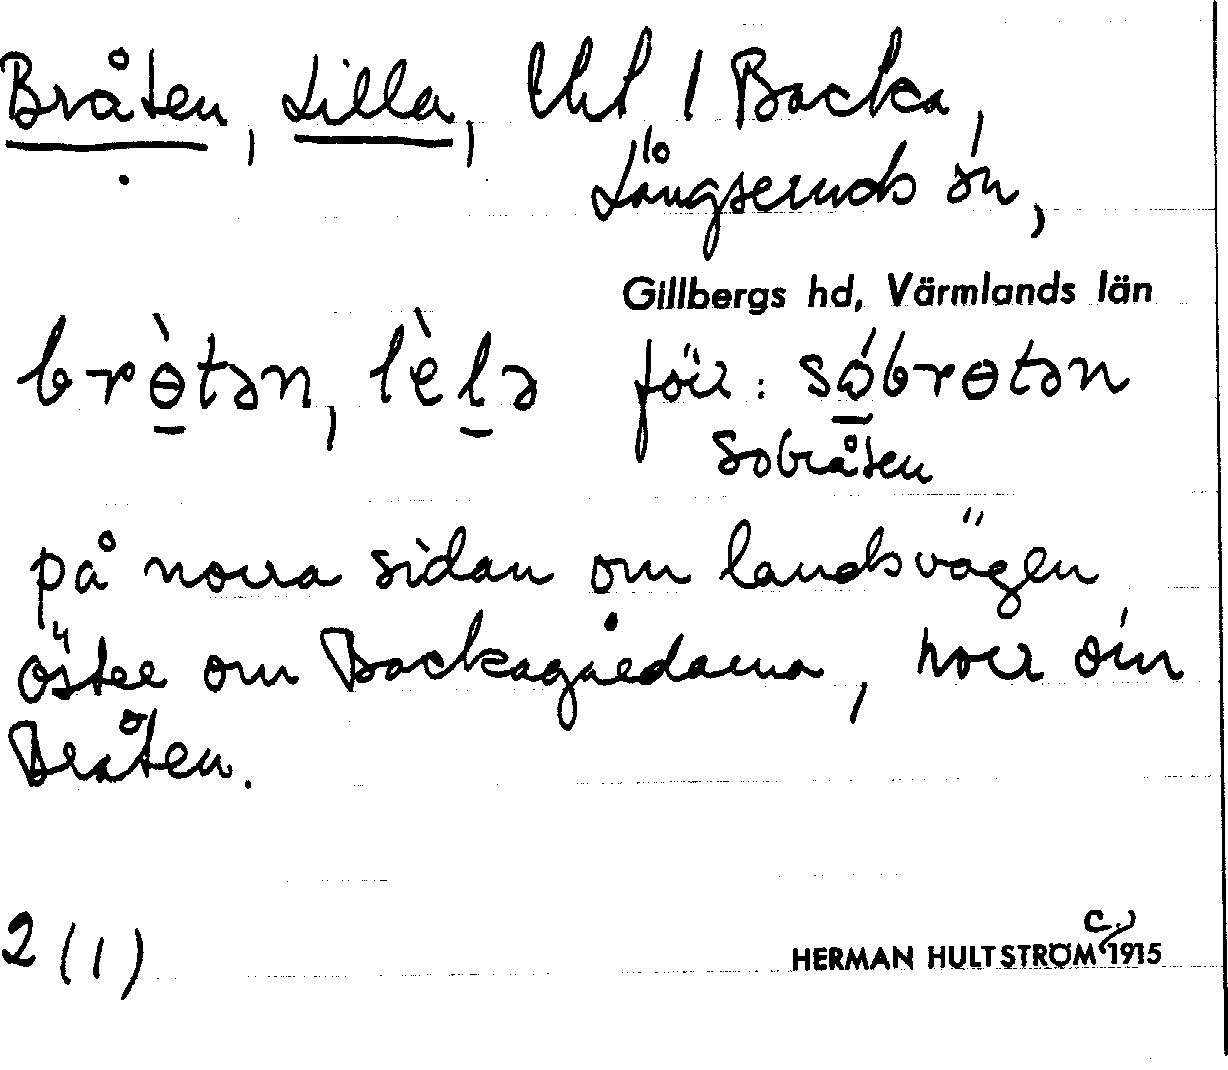 Bråten, Lilla, lht 1 Backa,
Långseruds sn,
Gillbergs hd, Värmlands län
brɵ̀tən, lèlə förr: sɵ́brɵtən
Sobråten
på norra sidan om landsvägen
öster om Backagårdarna, norr om
Bråten.
2 (1)
HERMAN HULTSTRÖM C. 1915